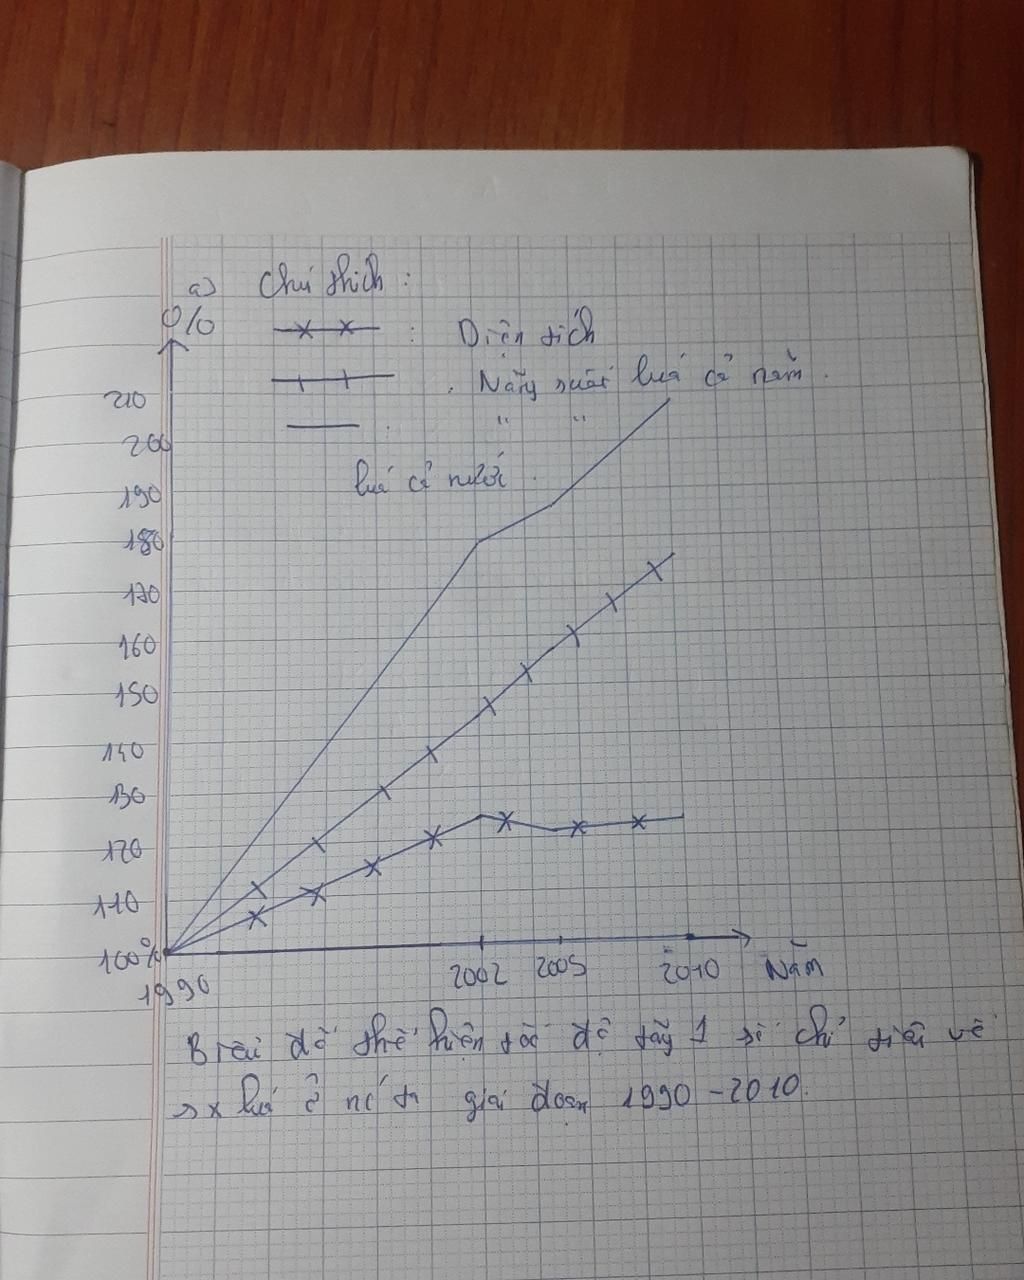 a) Chú thích :
%
: Diện tích
. Năng suất lúa cả năm .
: " "
lúa cả nước .
210
200
190
180
170
160
150
140
130
120
110
100%
1990 2002 2005 2010 Năm
Biểu đồ thể hiện tốc độ tăg 1 số chỉ tiêu về
sx lúa ở nc ta giai đoạn 1990 - 2010.